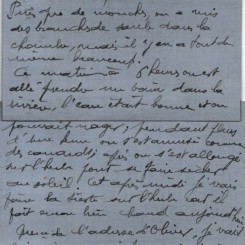 Puis pas de mouches, on a mis
des branches de saule dans la
chambre, mais il y en a tout de
même beaucoup.
Ce matin à 8 heures on est
allé prendre un bain dans la
rivière, l'eau était bonne et on
pouvait nager, pendant plus
d'une heure on s'est amusé comme
des canards, après on s'est allongé
sur l'herbe pour se faire sécher
au soleil. Et après midi je vais
faire la sieste sur l'herbe car il
fait aussi bien chaud aujourd'hui
de l'adresse d'Olivier, je vais